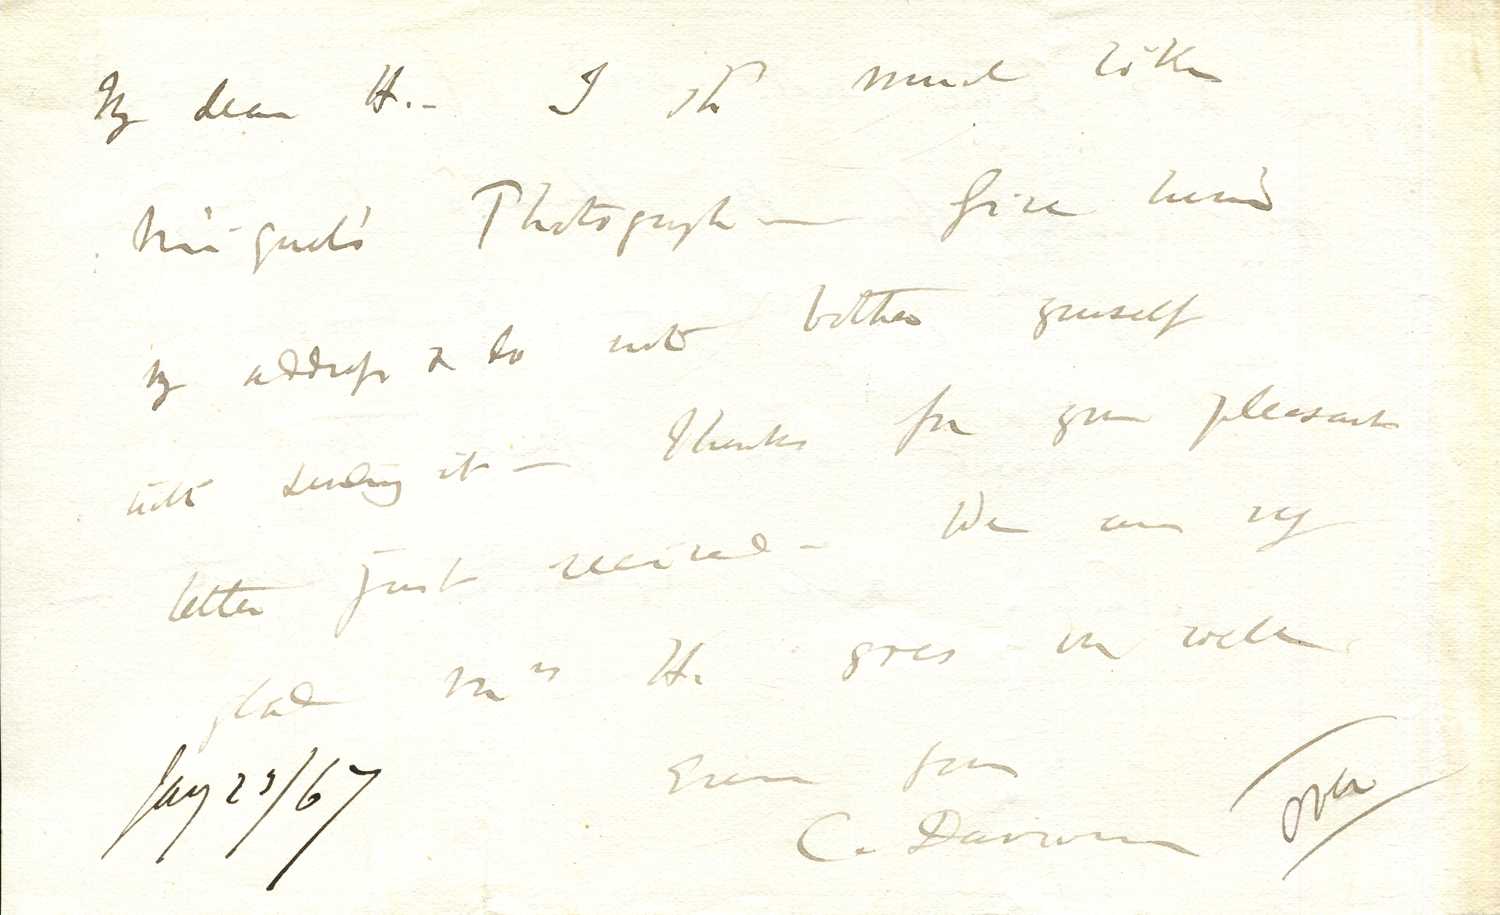 My dear H.— I shd much like
Miquel's Photograph — Give him
my address & do not bother yourself
with sending it — Thanks for your pleasant
letter just received — We are very
glad Mrs H. goes on well
Ever yours
C. Darwin
Jany 23/67
over